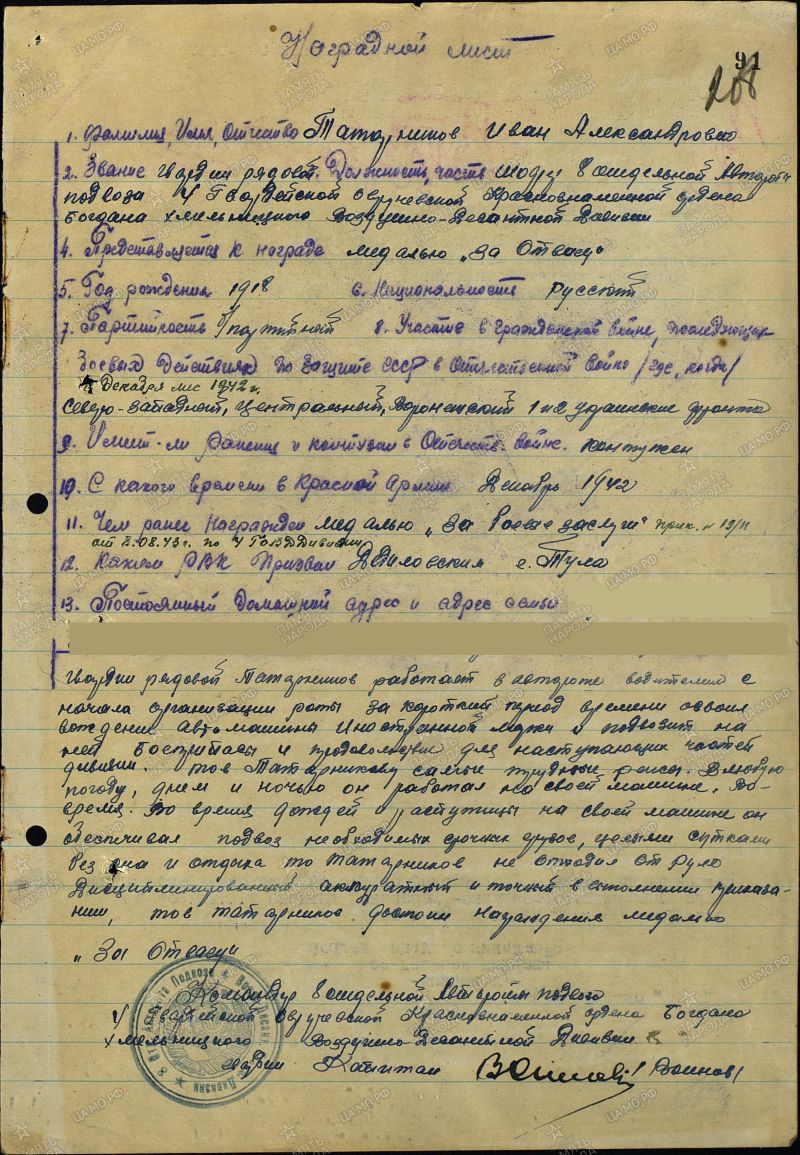 Наградной лист
91
208
1. Фамилия, Имя, Отчество Татарников Иван Александрович
2. Звание гвардии рядовой. Должность, часть шофер 8 отдельной Автороты
подвоза 4 Гвардейской Овручской Краснознаменной ордена
Богдана Хмельницкого Воздушно-Десантной Дивизии
4. Представляется к награде медалью „За Отвагу"
5. Год рождения 1918 6. Национальность Русский
7. Партийность 8. Участие в гражданской войне, последующих
боевых действиях по защите СССР в Отечественной войне /где, когда/
с Декабря мес 1942 г.
Северо-Западный, Центральный, Воронежский 1 и 2 украинские фронта
9. Имеет-ли ранения и контузии в Отечеств. войне. контужен
10. С какого времени в Красной Армии Декабрь 1942
11. Чем ранее награжден медалью „За боевые заслуги" прик. № 13/н
от 2.08.43 г. по 4 Гв ВД Дивизии
12. Каким РВК призван Дедиловским г. Тула
13. Постоянный домашний адрес и адрес семьи
гвардии рядовой Татарников работает в автороте водителем с
начала организации роты за короткий период времени освоил
вождение автомашины Иностранной марки и подвозит на
ней боеприпасы и продовольствие для наступающих частей
дивизии. тов Татарникову самые трудные рейсы. В любую
погоду, днем и ночью он работал на своей машине. Во-
время. Во время дождей и распутицы на своей машине он
обеспечивал подвоз необходимых срочных грузов, целыми сутками
без сна и отдыха тов Татарников не отходил от руля
Дисциплинированный аккуратный и точный в выполнении приказа-
нии, тов Татарников достоин награждения медалью
„За Отвагу
Командир 8 отдельной Автороты подвоза
4 Гвардейской Овручской Краснознаменной ордена Богдана
Хмельницкого Воздушно-Десантной Дивизии
гвардии Капитан /Воинов/